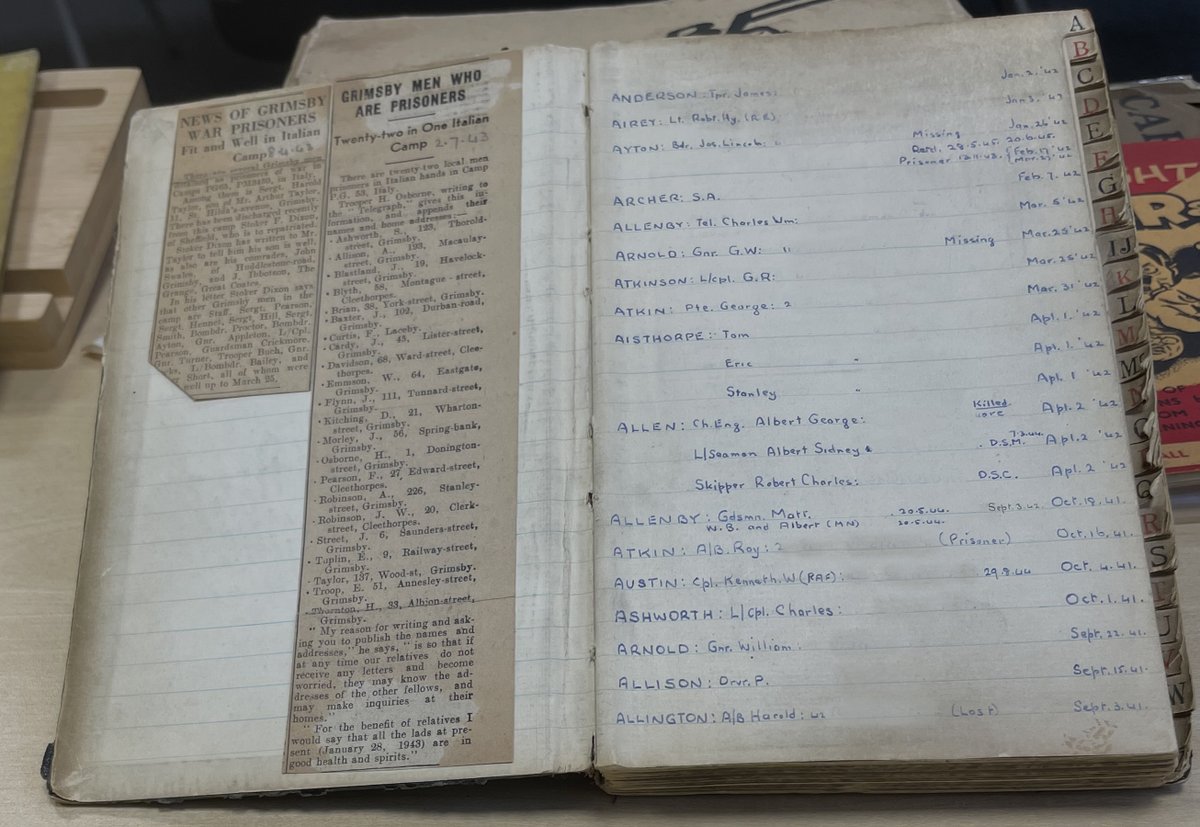 NEWS OF GRIMSBY
WAR PRISONERS
Fit and Well in Italian
Camp 8.4.43
There are several Grimsby men
detained as prisoners of war
Camps PG65, PM3450, in Italy.
Among them is Sergt. Harold
Taylor, son of Mr. Arthur Taylor,
31, St. Hilda's-avenue, Grimsby.
There has been discharged recently
from this camp Stoker F. Dixon,
of Sheffield, who is to repatriated.
Stoker Dixon has written to Mr.
Taylor to tell him his son is well,
as also are his comrades, John
Swales, of Huddlestone-road,
Grimsby, and J. Ibbotson, The
Grange, Great Coates.
In his letter Stoker Dixon says
that other Grimsby men in the
camp are Staff. Sergt. Pearson,
Sergt. Hennel, Sergt. Hill, Sergt.
Smith, Bombdr. Proctor, Bombdr.
Ayton, Gnr. Appleton, L/Cpl.
Pearson, Guardsman Crickmore,
Gnr. Turner, Trooper Buch, Gnr.
L/Bombdr. Bailey, and
Short, all of whom were
well up to March 25.
GRIMSBY MEN WHO
ARE PRISONERS
Twenty-two in One Italian
Camp 2.7.43
There are twenty-two local men
prisoners in Italian hands in Camp
P.G. 53, Italy.
Trooper H. Osborne, writing to
the "Telegraph," gives this in-
formation, and appends their
names and home addresses:—
Ashworth, S., 123, Thorold-
street, Grimsby.
Allison, A., 193, Macaulay-
street, Grimsby.
Blastland, J., 19, Havelock-
street, Grimsby.
Blyth, 88, Montague-street,
Cleethorpes.
Brian, 38, York-street, Grimsby.
Baxter, J., 102, Durban-road,
Grimsby.
Curtis, F., Laceby.
Cardy, J., 45, Lister-street,
Grimsby.
Davidson, 68, Ward-street, Clee-
thorpes.
Emmson, W., 64, Eastgate,
Grimsby.
Flynn, J., 111, Tunnard-street,
Grimsby.
Kitching, D., 21, Wharton-
street, Grimsby.
Morley, J., 56, Spring-bank,
Grimsby.
Osborne, H., 1, Donington-
street, Grimsby.
Pearson, F., 27, Edward-street,
Cleethorpes.
Robinson, A., 226, Stanley-
street, Grimsby.
Robinson, J. W., 20, Clerk-
street, Cleethorpes.
Street, J. 6, Saunders-street,
Grimsby.
Taplin, E., 9, Railway-street,
Grimsby.
Taylor, 137, Wood-st, Grimsby.
Troop, E. 51, Annesley-street,
Grimsby.
Thornton, H., 33, Albion-street,
Grimsby.
"My reason for writing and ask-
ing you to publish the names and
addresses," he says, "is so that if
at any time our relatives do not
receive any letters and become
worried, they may know the ad-
dresses of the other fellows, and
may make inquiries at their
homes."
"For the benefit of relatives I
would say that all the lads at pre-
sent (January 28, 1943) are in
good health and spirits."
ANDERSON: Tpr. James: Jan. 2. '42
AIREY: Lt. Robt. Hy. (R.E.) Jan 3. '42
AYTON: Bdr. Jos. Lincoln: Missing Jan. 26 '42
Retd. 28.5.45. 20.6.45.
Prisoner 13.11.43. (Feb. 17. '42
(Mar. 27. '42
ARCHER: S.A. Feb. 7. 42
ALLENBY: Tel. Charles Wm: Mar. 5. '42
ARNOLD: Gnr. G.W: " Missing Mar. 25 '42
ATKINSON: L/cpl. G.R: Mar. 25 '42
ATKIN: Pte. George: 2 Mar. 31 '42
AISTHORPE: Tom Apl. 1. '42
Eric " Apl. 1. '42
Stanley " Apl. 1 '42
ALLEN: Ch. Eng. Albert George: Killed Apl. 2 '42
L/Seaman Albert Sidney 7.3.44. D.S.M. Apl. 2 '42
Skipper Robert Charles: D.S.C. Apl. 2 '42
ALLENBY: Gdsmn. Matt. 20.5.44. Sept. 3. 42. Oct. 19. 41.
W.B. and Albert (MN) 20.5.44.
ATKIN: A/B. Roy: 2 (Prisoner) Oct. 16. 41.
AUSTIN: Cpl. Kenneth. W (RAF): 29.8.44 Oct. 4. 41.
ASHWORTH: L/Cpl. Charles: Oct. 1. 41.
ARNOLD: Gnr. William: Sept. 22. 41.
ALLISON: Drvr. P. Sept. 15. 41.
ALLINGTON: A/B Harold: 42 (Lost) Sept. 3. 41.
A
B
C
D
E
F
G
H
IJ
K
L
M
R
S
U
W